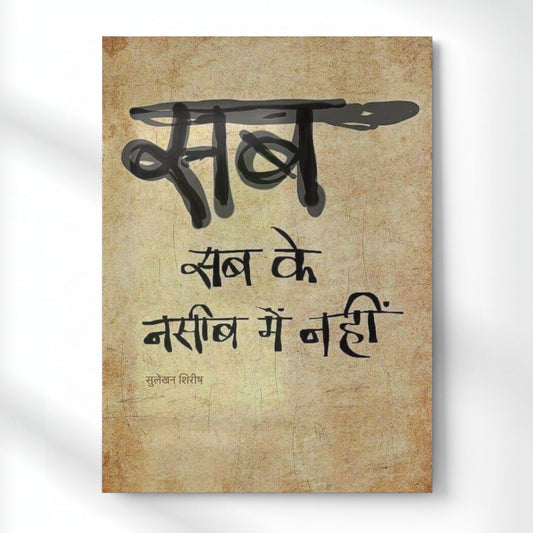 सब
सब के
नसीब में नहीं
सुलेखन शिरीष